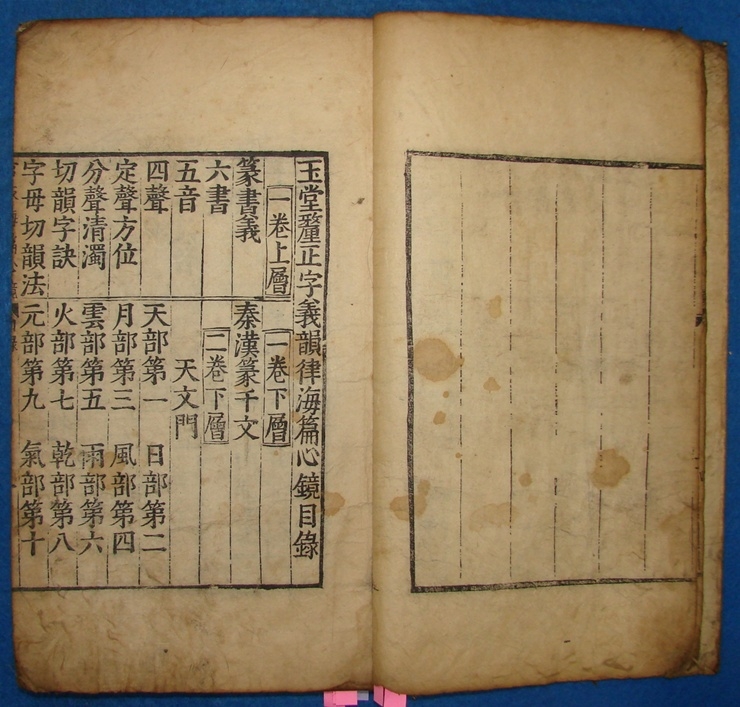 玉堂釐正字義韻律海篇心鏡目錄
一卷上層
篆書義
六書
五音
四聲
定聲方位
分聲清濁
切韻字訣
字母切韻法
一卷下層
秦漢篆千文
二卷下層
天文門
天部第一 日部第二
月部第三 風部第四
雲部第五 雨部第六
火部第七 乾部第八
元部第九 氣部第十